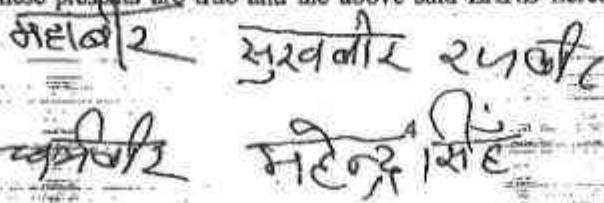 these presents are true and the above said
महाबीर सुखबीर रणबीर
धर्मबीर महेन्द्र सिंह